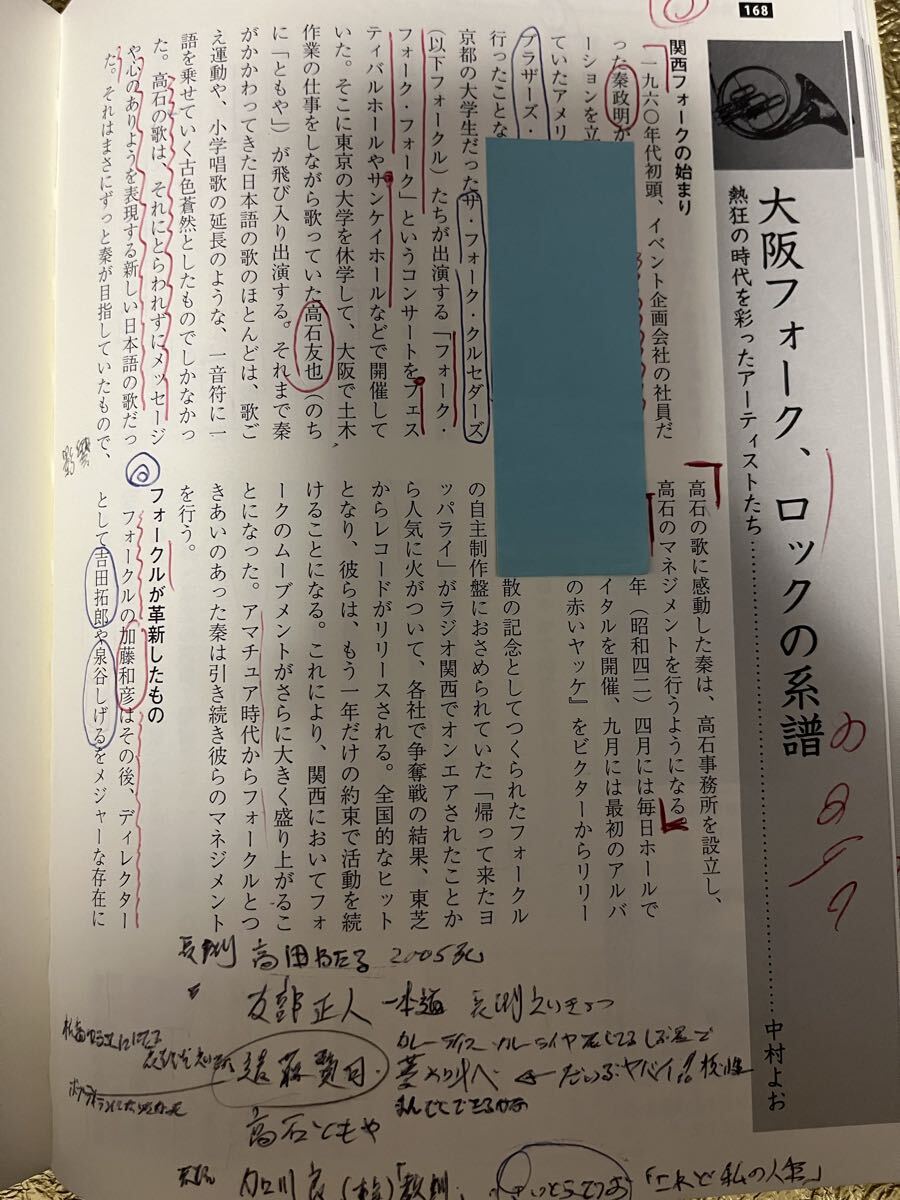 168
大阪フォーク、ロックの系譜
熱狂の時代を彩ったアーティストたち
中村よお
関西フォークの始まり
一九六〇年代初頭、イベント企画会社の社員だ
った秦政明が
ーションを立
ていたアメリ
ブラザーズ・
行ったことな
京都の大学生だったザ・フォーク・クルセダーズ
(以下フォークル)たちが出演する「フォーク・
フォーク・フォーク」というコンサートをフェス
ティバルホールやサンケイホールなどで開催して
いた。そこに東京の大学を休学して、大阪で土木
作業の仕事をしながら歌っていた高石友也(のち
に「ともや」)が飛び入り出演する。それまで秦
がかかわってきた日本語の歌のほとんどは、歌ご
え運動や、小学唱歌の延長のような、一音符に一
語を乗せていく古色蒼然としたものでしかなかっ
た。高石の歌は、それにとらわれずにメッセージ
や心のありようを表現する新しい日本語の歌だっ
た。それはまさにずっと秦が目指していたもので、
高石の歌に感動した秦は、高石事務所を設立し、
高石のマネジメントを行うようになる。
年(昭和四二)四月には毎日ホールで
イタルを開催、九月には最初のアルバ
の赤いヤッケ』をビクターからリリー
散の記念としてつくられたフォークル
の自主制作盤におさめられていた「帰って来たヨ
ッパライ」がラジオ関西でオンエアされたことか
ら人気に火がついて、各社で争奪戦の結果、東芝
からレコードがリリースされる。全国的なヒット
となり、彼らは、もう一年だけの約束で活動を続
けることになる。これにより、関西においてフォ
ークのムーブメントがさらに大きく盛り上がるこ
とになった。アマチュア時代からフォークルとつ
きあいのあった秦は引き続き彼らのマネジメント
を行う。
フォークルが革新したもの
フォークルの加藤和彦はその後、ディレクター
として吉田拓郎や泉谷しげるをメジャーな存在に
高田 2005
友部正人 一本道
高石ともや
加川良
「これが私の人生」